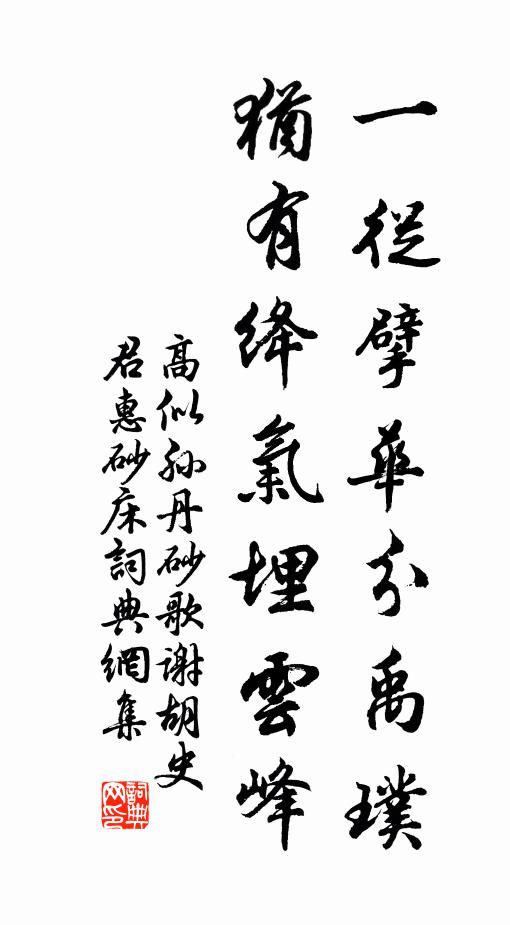 一從擘華分禹璞
猶有絳氣埋雲峰
高似孙丹砂歌谢胡史
君惠砂床詞典網集
詞典网印